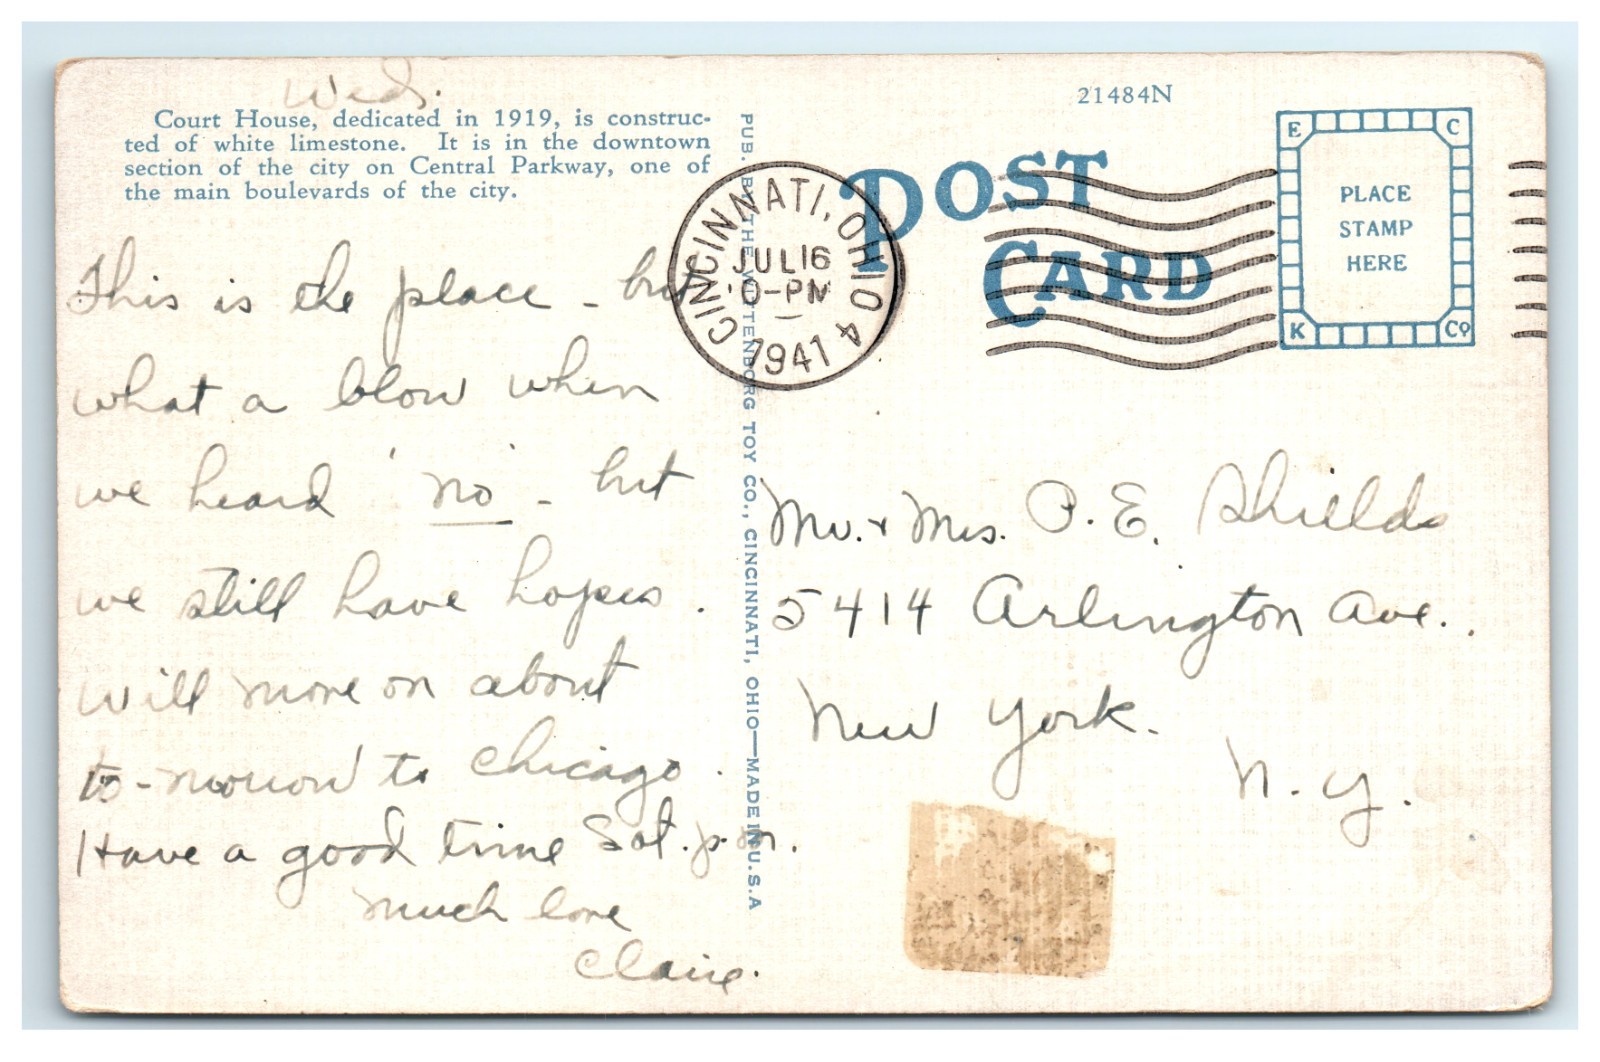 Wed.
Court House, dedicated in 1919, is construc-
ted of white limestone. It is in the downtown
section of the city on Central Parkway, one of
the main boulevards of the city.
This is the place - but
what a blow when
we heard 'no' - but
we still have hopes.
Will move on about
to-morrow to Chicago.
Have a good time Sat. p.m.
Much love
Claire.
PUB. BY THE WOTTENBORG TOY CO., CINCINNATI, OHIO—MADE IN U.S.A
21484N
POST
CARD
CINCINNATI, OHIO 4
JUL 16
0-PM
1941
E C
PLACE
STAMP
HERE
K Co
Mr. + Mrs. P. E. Shields
5414 Arlington Ave.
New York.
N.Y.